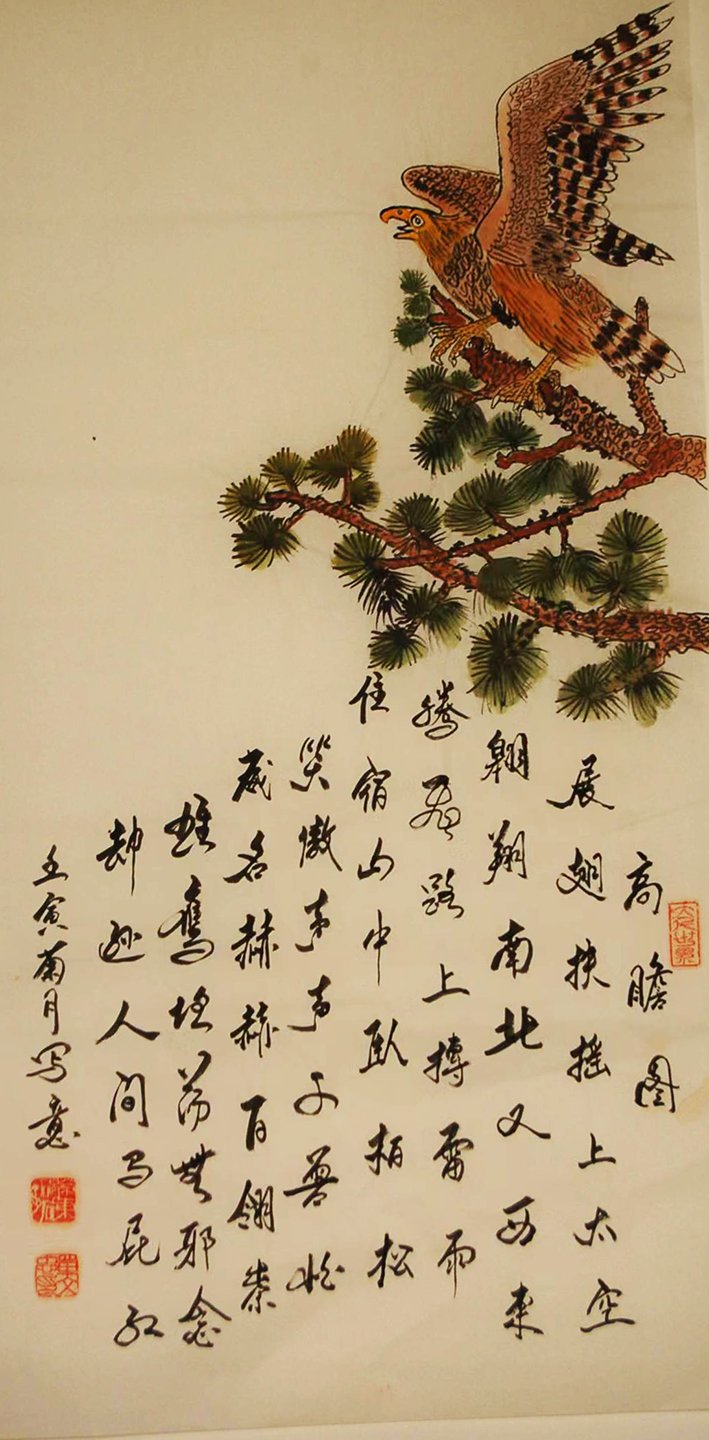 高瞻图
展翅扶摇上太空
翱翔南北又西东
腾路上搏雷雨
住宿山中卧柏松
笑傲声声千兽怕
威名赫赫百翎崇
雄鹰坦荡无邪念
却逊人间马屁红
壬寅菊月写意